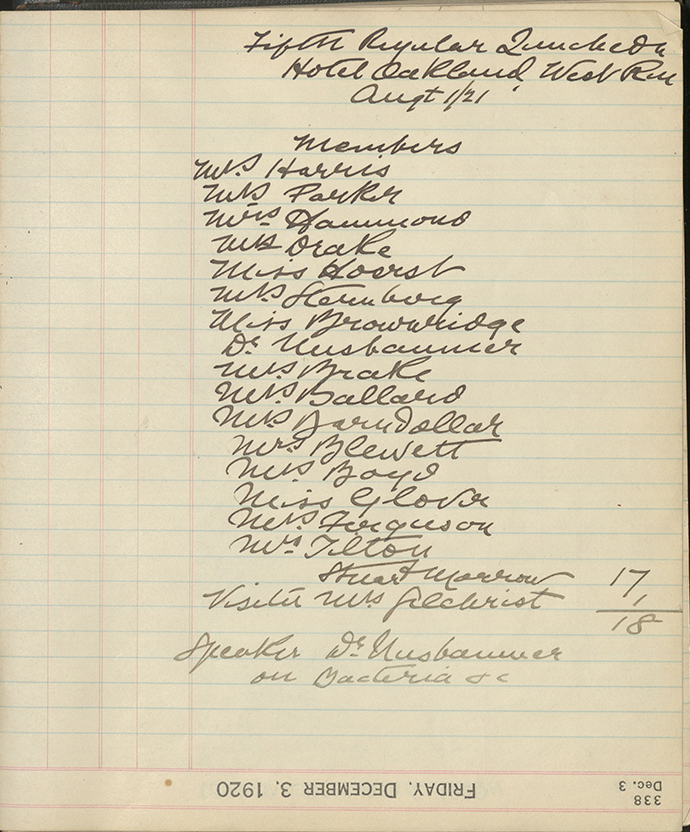 Fifth Regular Luncheon
Hotel Oakland, West Rm
Augt 1/21
Members
Mrs Harris
Mrs Parker
Mrs Hammond
Mrs Drake
Miss Hoerst
Mrs Sternberg
Miss Brownridge
Dr Nusbaumer
Mrs Brake
Mrs Ballard
Mrs Barndollar
Mrs Blewett
Mrs Boyd
Miss Glover
Mrs Ferguson
Mrs Tilton
Stuart Morrow 17
Visitor Mrs Gilchrist 1
18
Speaker Dr Nusbaumer
on Bacteria &c
FRIDAY, DECEMBER 3, 1920
338
Dec. 3